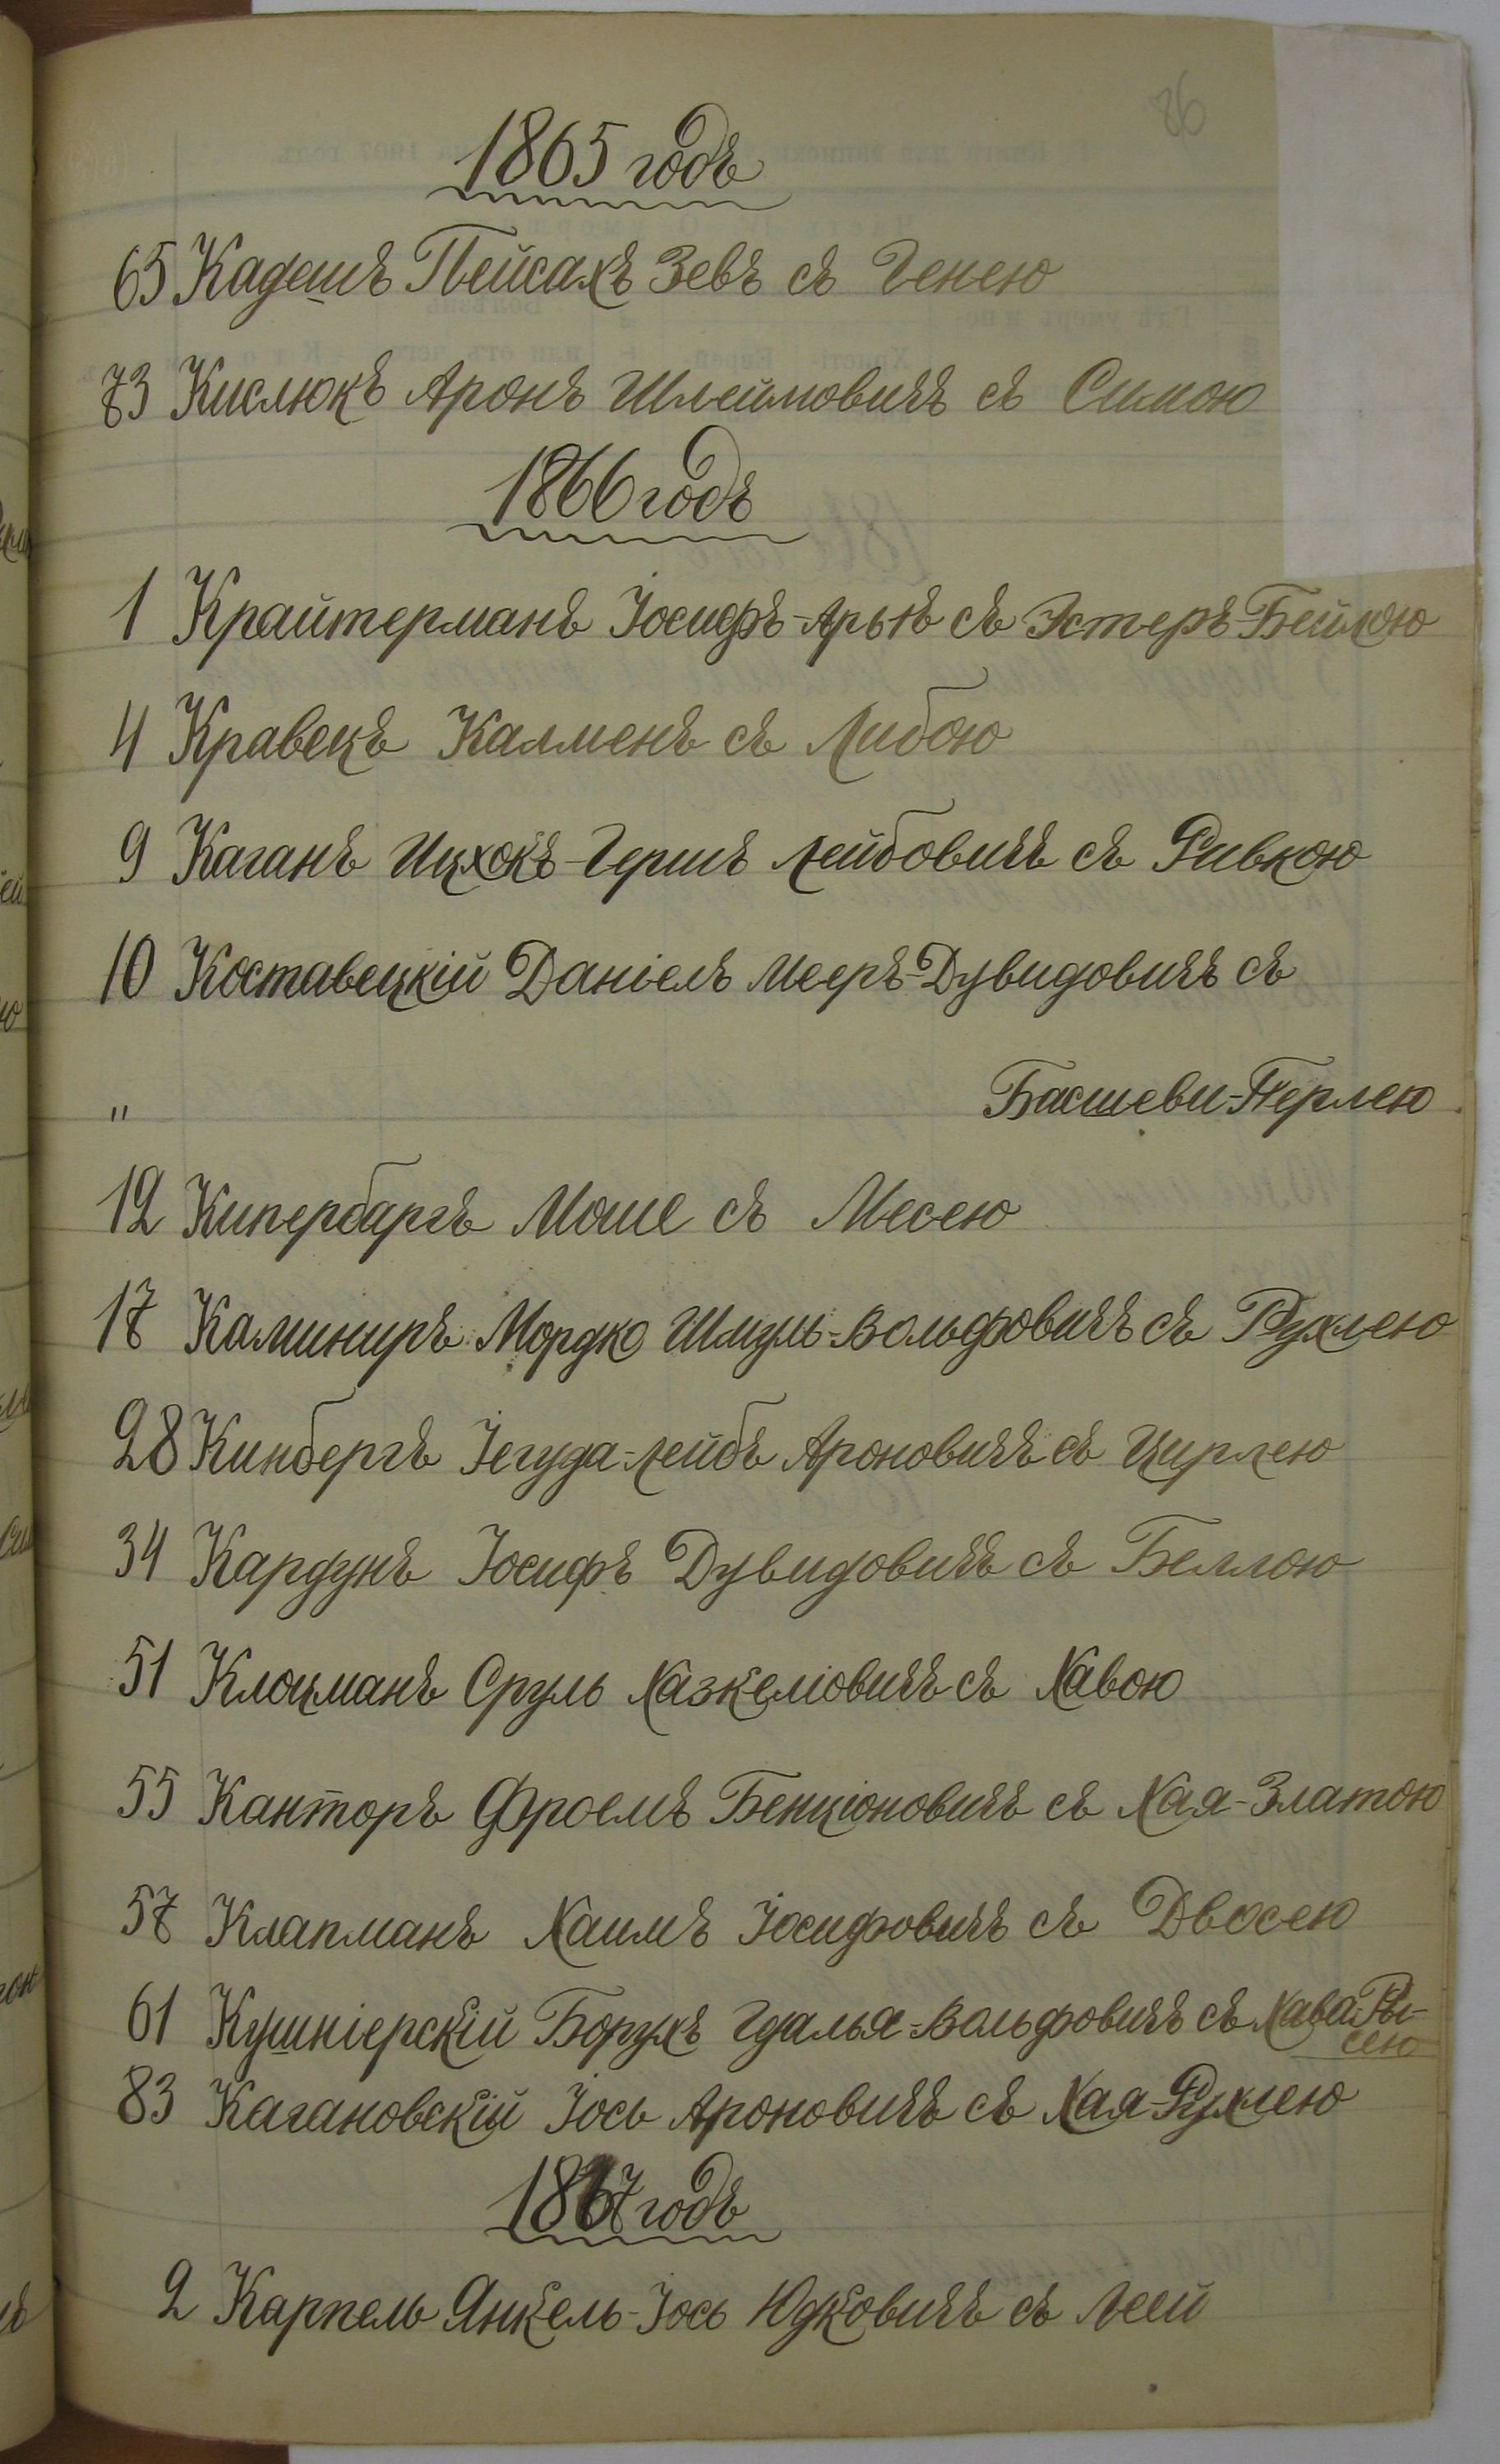 86
1865 годъ
65 Кадешъ Пейсахъ Зевъ съ Генею
73 Кислюкъ Аронъ Шлеймовичъ съ Симою
1866 годъ
1 Крайтерманъ Іосифъ-Арьъ съ Эстеръ-Бейлою
4 Кравекъ Калменъ съ Либою
9 Каганъ Ицхокъ-Гершъ Лейбовичъ съ Ривкою
10 Коставецкій Даніелъ Мееръ-Дувидовичъ съ
" Басшеви-Перлею
12 Кипербаргъ Моше съ Месею
17 Каминиръ Мордко Шмуль-Вольфовичъ съ Рухлею
28 Кинбергъ Іегуда-Лейбъ Ароновичъ съ Цирлею
34 Кардунъ Іосифъ Дувидовичъ съ Беллою
51 Клоцманъ Сруль Хазкеліовичъ съ Хавою
55 Канторъ Фроемъ Бенціоновичъ съ Хая-Златою
57 Клапманъ Хаимъ Іосифовичъ съ Двосею
61 Кушніерскій Борухъ Гдалья-Вольфовичъ съ Хава-Ры-
сею
83 Кагановскій Іось Ароновичъ съ Хая-Рухлею
1867 годъ
2 Карпель Янкель-Іось Юдковичъ съ Леей